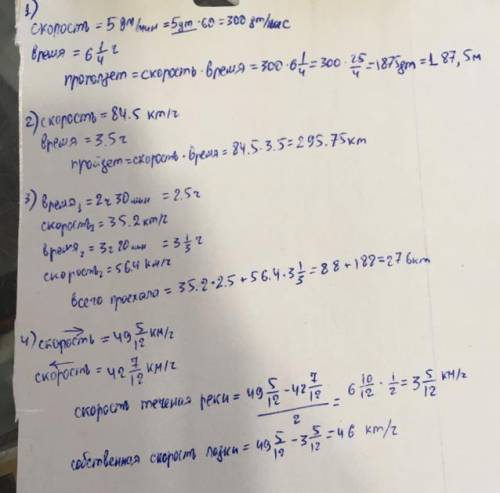 1)
скорость = 5 дм/мин = 5дm · 60 = 300 дm/час
время = 6 1/4 г
проползет = скорость · время = 300 · 6 1/4 = 300 · 25/4 = 1875дm = 187,5м
2) скорость = 84.5 km/г
время = 3.5г
пройдет = скорость · время = 84.5 · 3.5 = 295.75km
3) время₁ = 2г 30 мин = 2.5г
скорость₁ = 35.2 km/г
время₂ = 3г 20 мин = 3 1/3 г
скорость₂ = 56.4 км/г
всего проехала = 35.2 · 2.5 + 56.4 · 3 1/3 = 88 + 188 = 276 km
4) скорость = 49 5/12 км/г
скорость = 42 7/12 км/г
скорость течения реки = (49 5/12 - 42 7/12)/2 = 6 10/12 · 1/2 = 3 5/12 км/г
собственная скорость лодки = 49 5/12 - 3 5/12 = 46 км/г